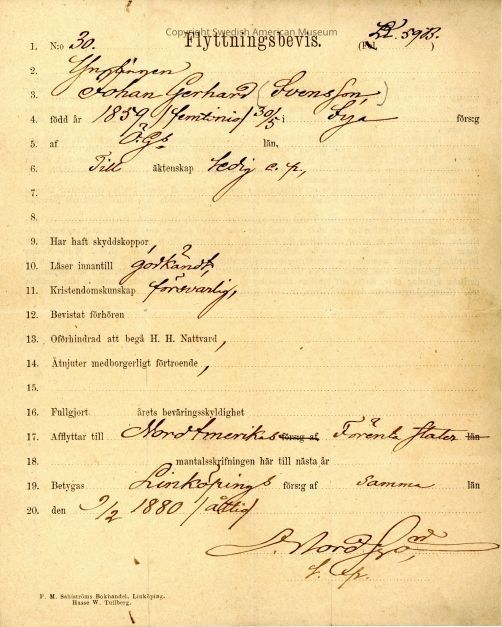 Copyright Swedish American Museum
1. N:o 30. Flyttningsbevis. (Fol. 593.)
2. Ynglingen
3. Johan Gerhard (Svensson)
4. född år 1859 /femtinio/ 30/5 i Sya förs:g
5. af Ö.Gs län,
6. Till äktenskap ledig e. p.,
7.
8.
9. Har haft skyddskoppor,
10. Läser innantill godkändt,
11. Kristendomskunskap försvarlig,
12. Bevistat förhören
13. Oförhindrad att begå H. H. Nattvard,
14. Åtnjuter medborgerligt förtroende,
15.
16. Fullgjort årets beväringsskyldighet
17. Afflyttar till Nord Amerikas förs:g af Förenta Stater län
18. mantalsskrifningen här till nästa år
19. Betygas Linköpings förs:g af samma län
20. den 9/2 1880 /åttio/
F. M. Sahlströms Bokhandel, Linköping.
Hasse W. Tullberg.